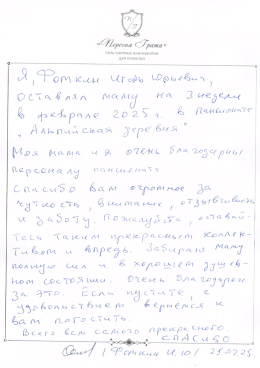 «Первая Грата»
СЕТЬ ЧАСТНЫХ ПАНСИОНАТОВ
ДЛЯ ПОЖИЛЫХ
Я, Фомкин Игорь Юрьевич,
оставлял маму на 3 недели
в феврале 2025 г. в пансионате
"Альпийская деревня"
Моя мама и я очень благодарны
персоналу пансионата
Спасибо вам огромное за
чуткость, внимание, отзывчивость
и заботу. Пожалуйста, оставай-
тесь таким прекрасным коллек-
тивом и впредь. Забираю маму
полную сил и в хорошем душев-
ном состоянии. Очень благодарен
за это. Если пустите, с
удовольствием вернёмся к
вам погостить.
Всего вам самого прекрасного.
СПАСИБО
/Фомкин И.Ю./ 25.02.25.